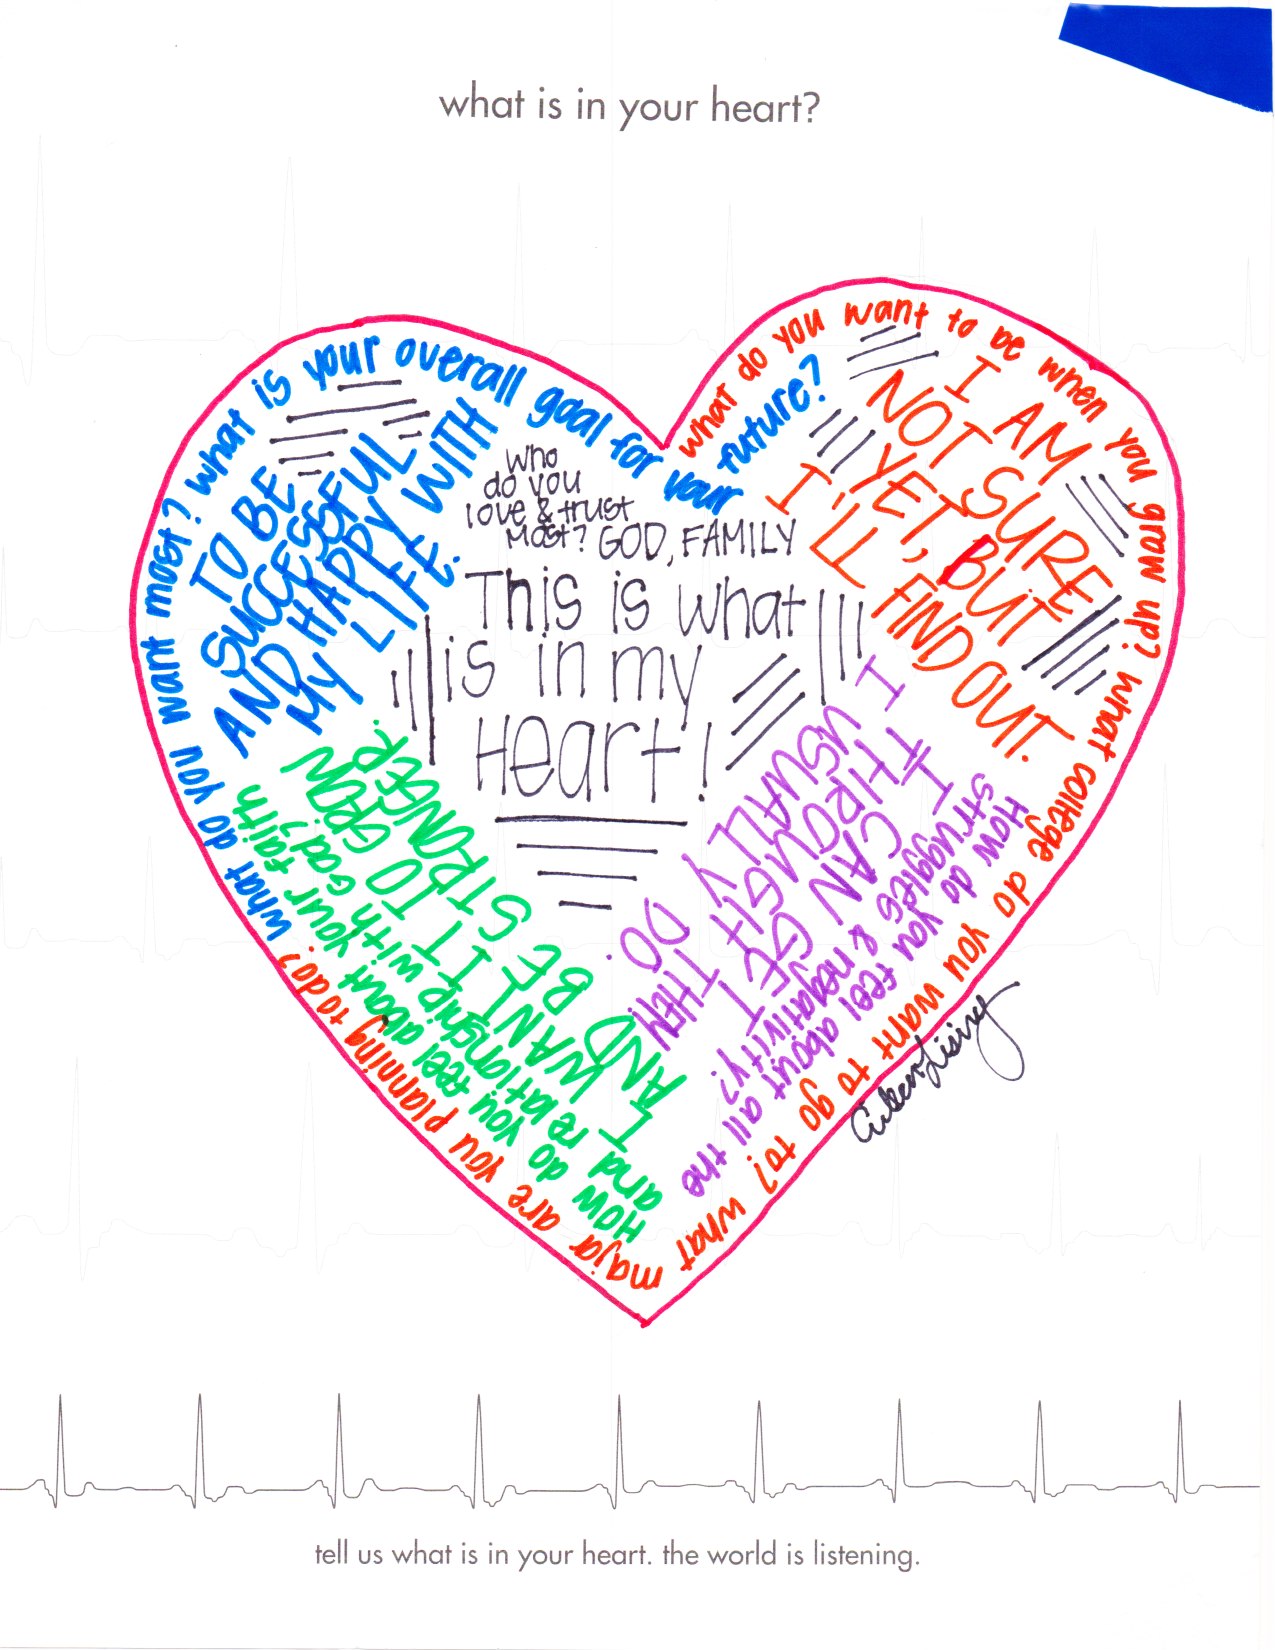 what is in your heart?
what do you want most? what is your overall goal for your
future?
TO BE
SUCCESSFUL
AND HAPPY WITH
MY LIFE.
what do you want to be when you grow up? what college do you want to go to? what
major are you planning to do?
I AM
NOT SURE
YET, BUT
I'LL FIND OUT.
who
do you
love & trust
most? GOD, FAMILY
This is what
is in my
Heart!
How do you feel about all the
struggles & negativity?
I USUALLY
CAN GET
THROUGH THEN
I DO.
How do you feel about your faith
and relationship with God?
I WANT IT TO GROW
AND BE STRONGER.
tell us what is in your heart. the world is listening.